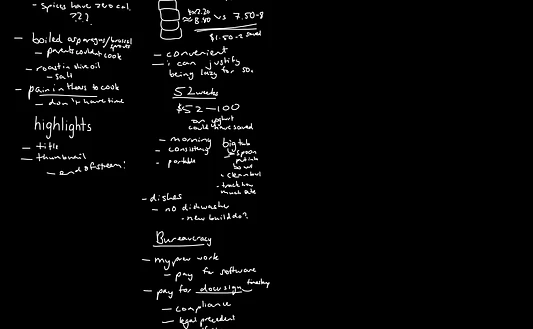 - spices have zero cal.
???
- boiled asparagus/brussel sprouts
- parents couldnt cook
- roast in olive oil
- salt
- pain in the ass to cook
- don't have time
highlights
- title
- thumbnail
- end of stream?
4x2.20
≈ 8.80 vs 7.50-8
$1.50-2 saved
- convenient
- i can justify
being lazy for 50¢
52 weeks
$52-100
on yoghurt
could have saved
- morning
- consisting
- portable
big tub
spoon
put into
bowl
- clean bowl
- track how
much ate
- dishes
- no dishwasher
- new build do?
Bureaucracy
- my prev work
- pay for software
- pay for docusign
- compliance
- legal precedent